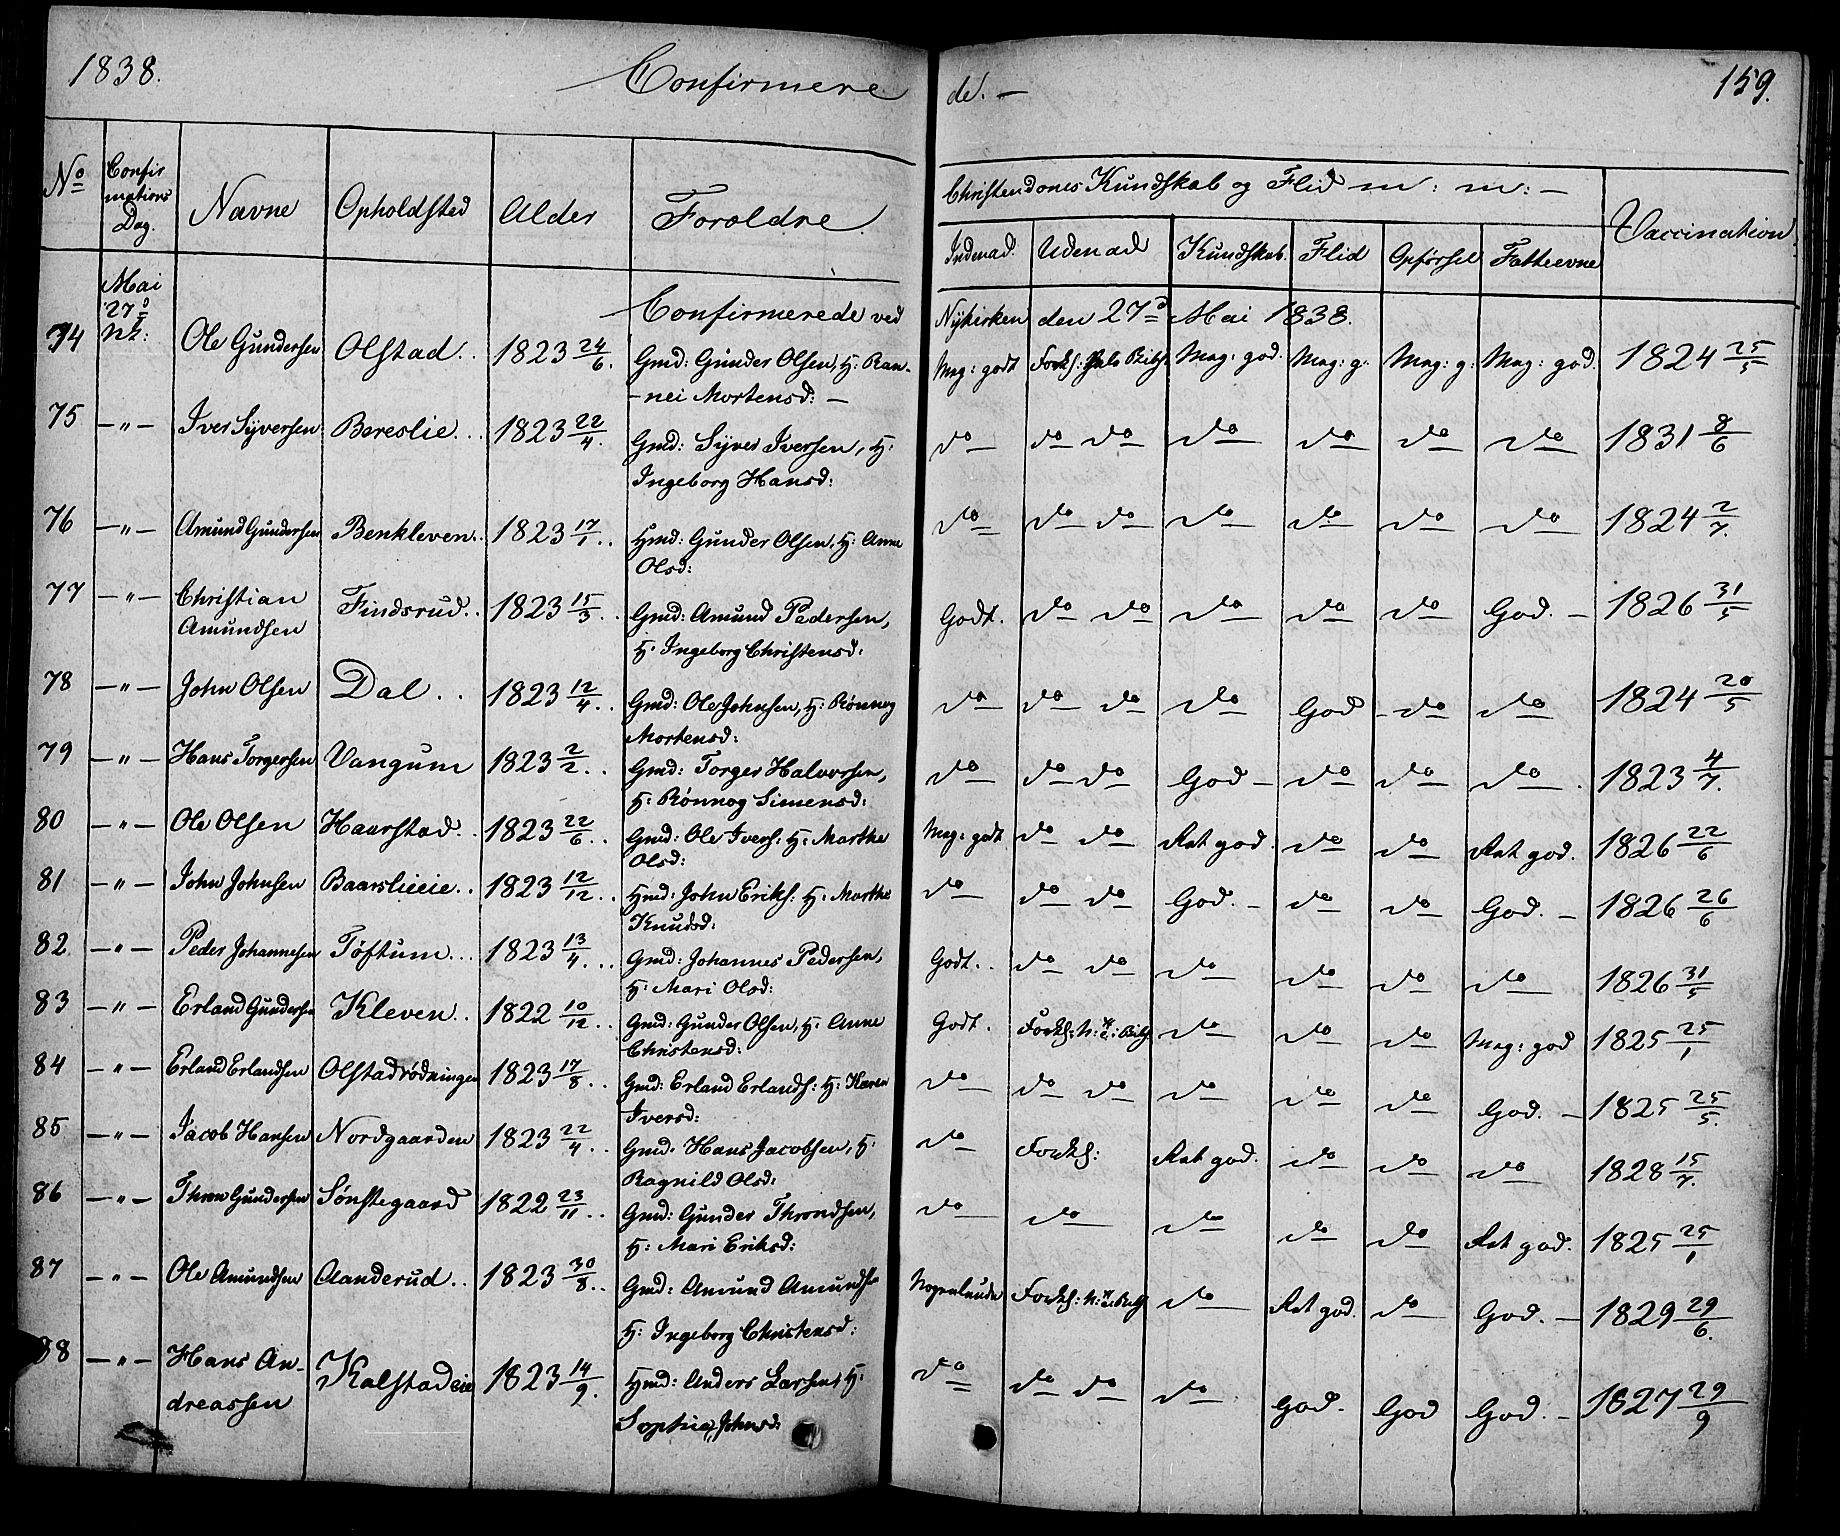 1838. Confirmere de. — 159.
No Confirmations Dag. Navne Opholdsted Alder Foroldre Christendomes Kundskab og Flid m: m: — Vaccination.
Indenad. Udenad Kundskab. Flid Opførsel Fatteevne
Mai 27de Nk: Confirmerede ved Nykirken den 27de Mai 1838.
74 Ole Gundersen Olstad.. 1823 24/6. Gmd: Gunder Olsen, H: Ran-
nei Mortensd: — Mag: godt Forkl: Mag: god. Mag: g. Mag: g. Mag: god. 1824 25/5
75 —"— Iver Syversen Bereslie... 1823 22/4. Gmd: Syver Iversen, H:
Ingeborg Hansd: do do do do do do do 1831 8/6
76 —"— Amund Gundersen Benkleven.. 1823 17/1.. Hmd: Gunder Olsen, H: Anne
Olsd: do do do do do do do 1824 2/7.
77 —"— Christian
Amundsen Findsrud.. 1823 15/3.. Gmd: Amund Pedersen,
H: Ingeborg Christensd: Godt. do do do do do God. — 1826 31/5
78 —"— John Olsen Dal.. 1823 12/4.. Gmd: Ole Johnsen, H: Rønnog
Mortensd: do do do do God do do 1824 20/5
79 —"— Hans Torgersen Vangum 1823 2/2.. Gmd: Torger Halvorsen,
H: Rønnog Simensd: do do do God — do do do. 1823 4/7.
80 —"— Ole Olsen Haarstad.. 1823 22/6.. Gmd: Ole Ivers: H: Marthe
Olsd: Mag: godt do do Ret god. do do Ret god. 1826 22/6
81 —"— John Johnsen Baarslieeie.. 1823 12/12.. Hmd: John Eriks: H: Marthe
Knudsd: do do do God. — do do God. — 1826 26/6
82 —"— Peder Johannesen Tøftum... 1823 13/4... Gmd: Johannes Pedersen,
H: Mari Olsd: Godt.. do do do do do do 1826 31/5
83 —"— Erland Gundersen Kleven.. 1822 10/12.. Gmd: Gunder Olsen, H: Anne
Christensd: Godt. Forkl: do do do Mag: god 1825 25/1
84 —"— Erland Erlandsen Olstadrødningen 1823 17/8.. Gmd: Erland Erlands: H: Karen
Iversd: do do do do do do God. — 1825 25/5.
85 —"— Jacob Hansen Nordgaarden 1823 22/4.. Gmd: Hans Jacobsen, H:
Ragnild Olsd: do Forkl: Ret god. do do do 1828 15/7.
86 —"— Thron Gundersen Sønstegaard 1822 23/11.. Gmd: Gunder Throndsen,
H: Mari Eriksd: do do do do do Ret god. 1825 25/1
87 —"— Ole Amundsen Aanderud.. 1823 30/8.. Gmd: Amund Amunds
H: Ingeborg Christensd: Nogenlunde Forkl: do Ret god. do God. — 1829 29/6.
88 —"— Hans An-
dreassen Kalstadeie 1823 14/9. Hmd: Anders Larsen, H:
Sophia Johnsd: do do do do God. God God. — 1827 29/9